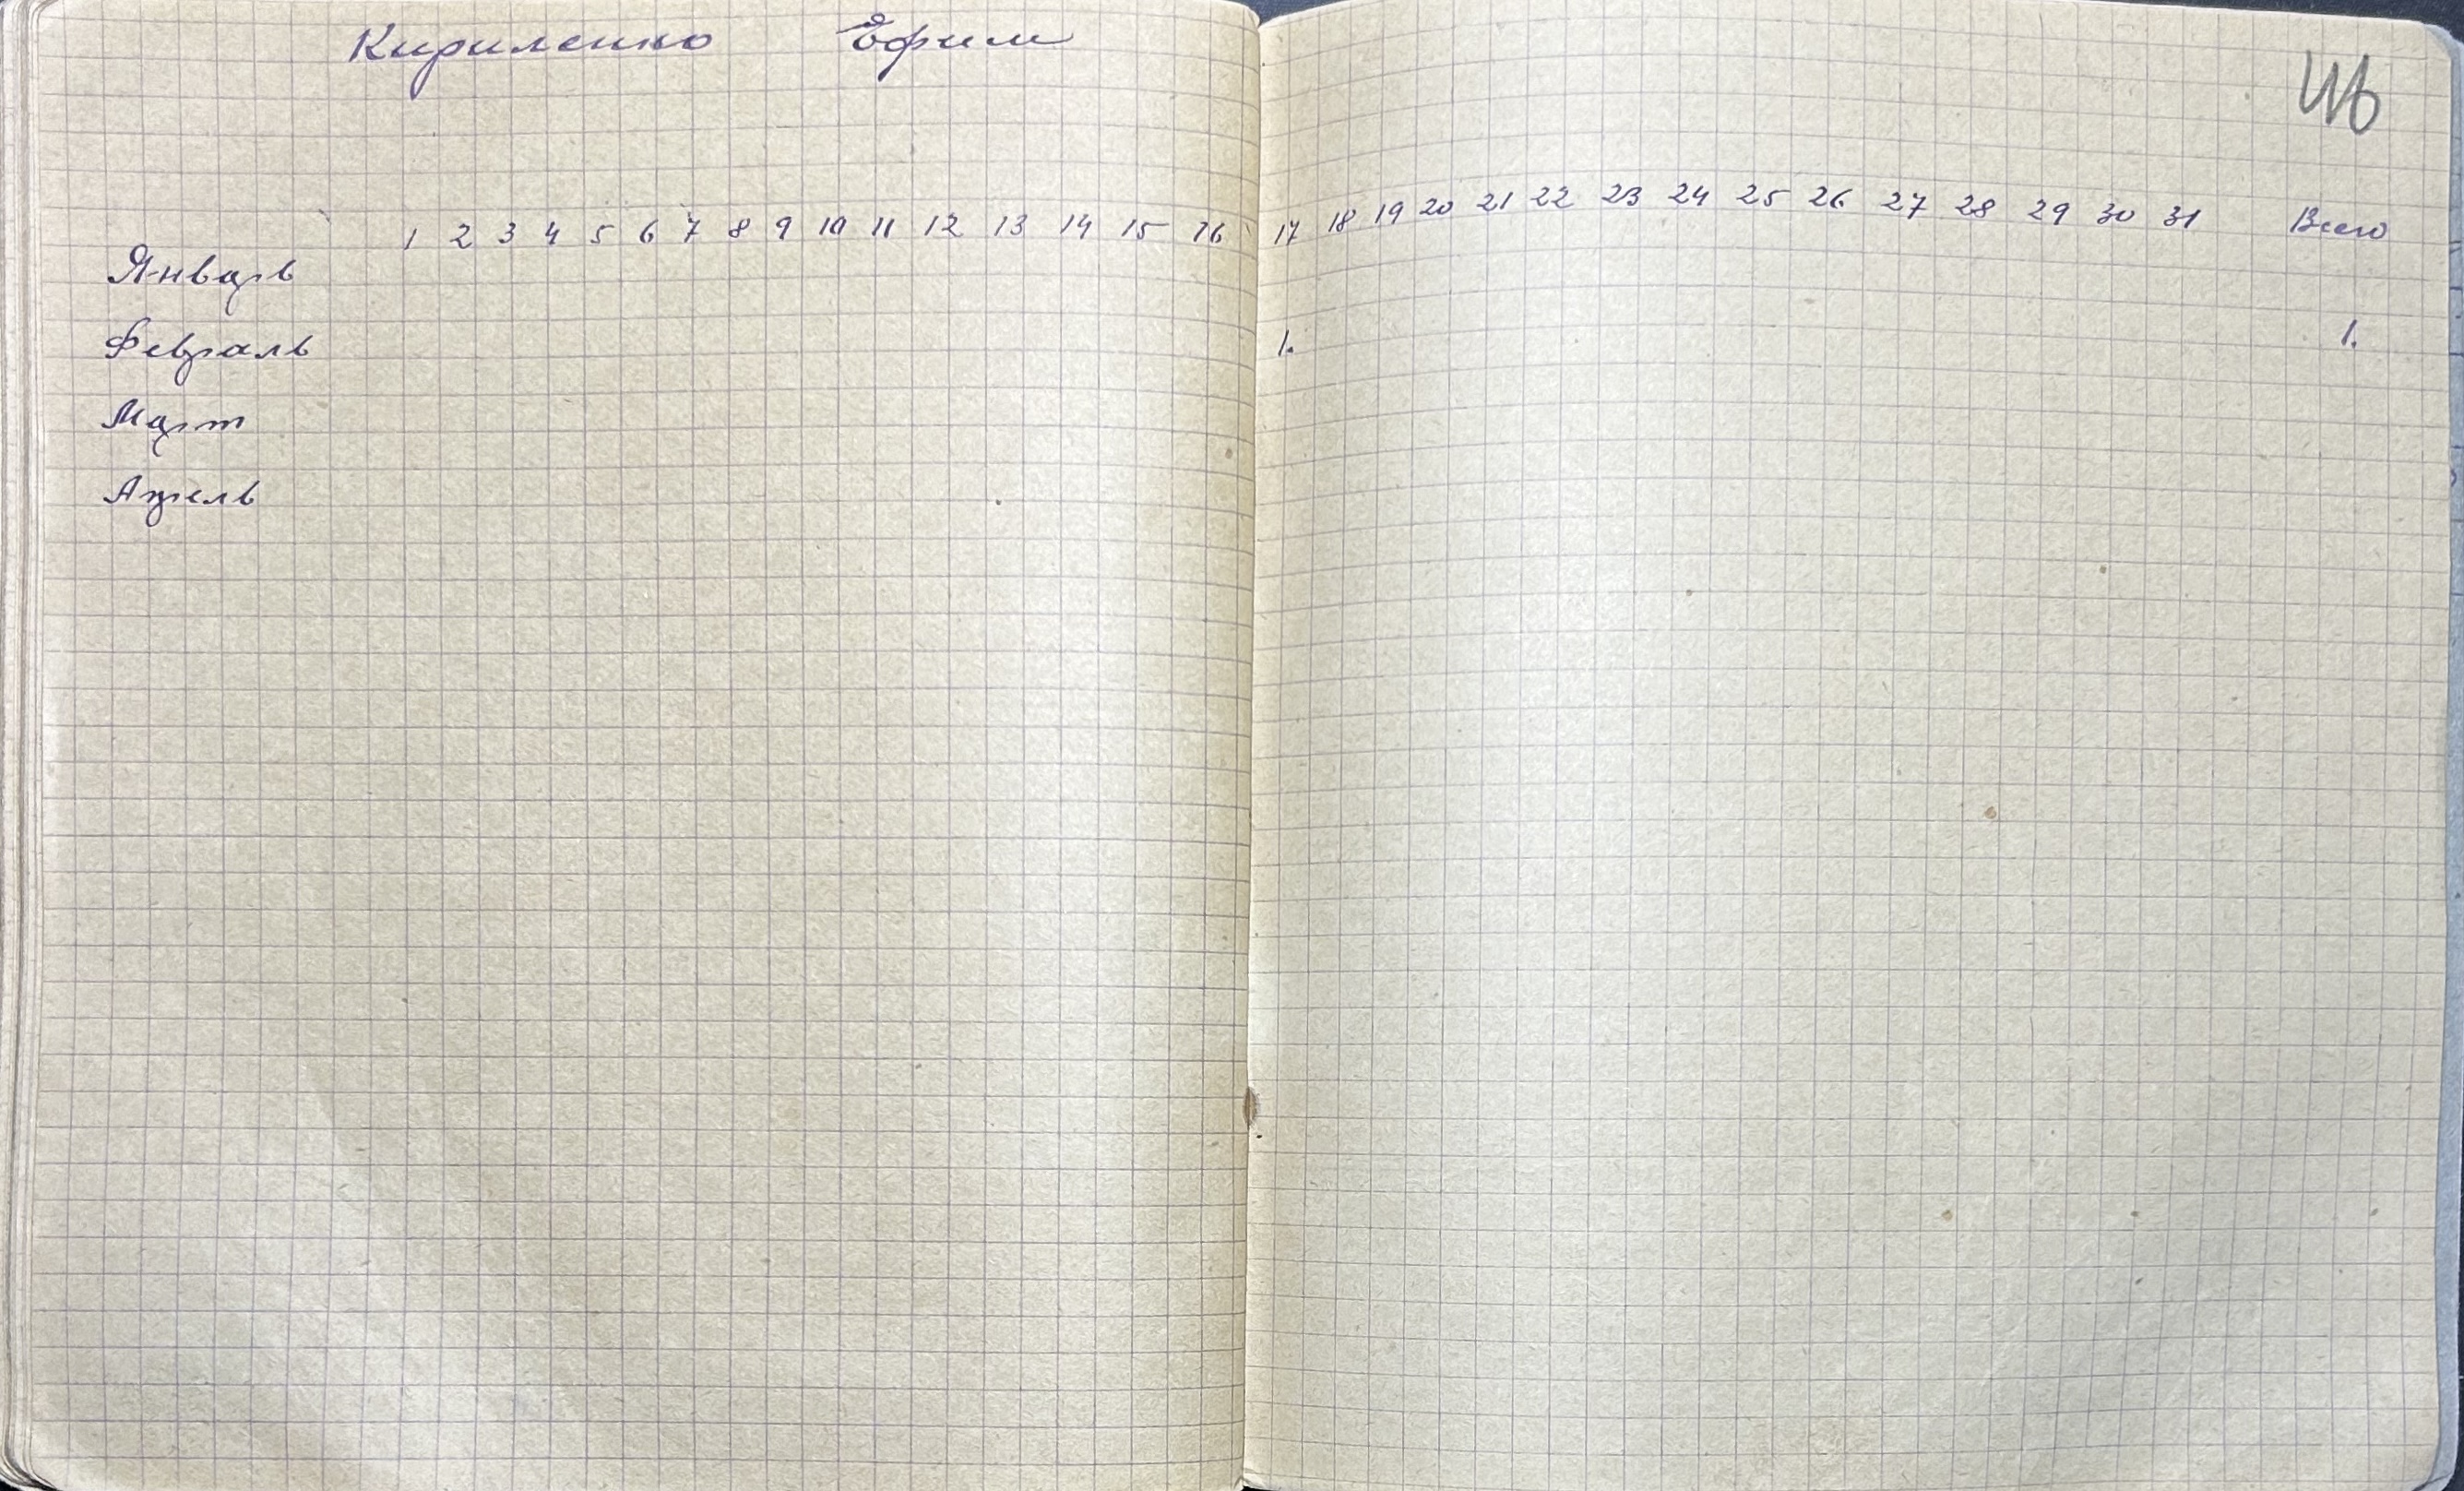 Кириленко Ефим
1 2 3 4 5 6 7 8 9 10 11 12 13 14 15 16 17 18 19 20 21 22 23 24 25 26 27 28 29 30 31 Всего
Январь
Февраль 1. 1.
Март
Апрель